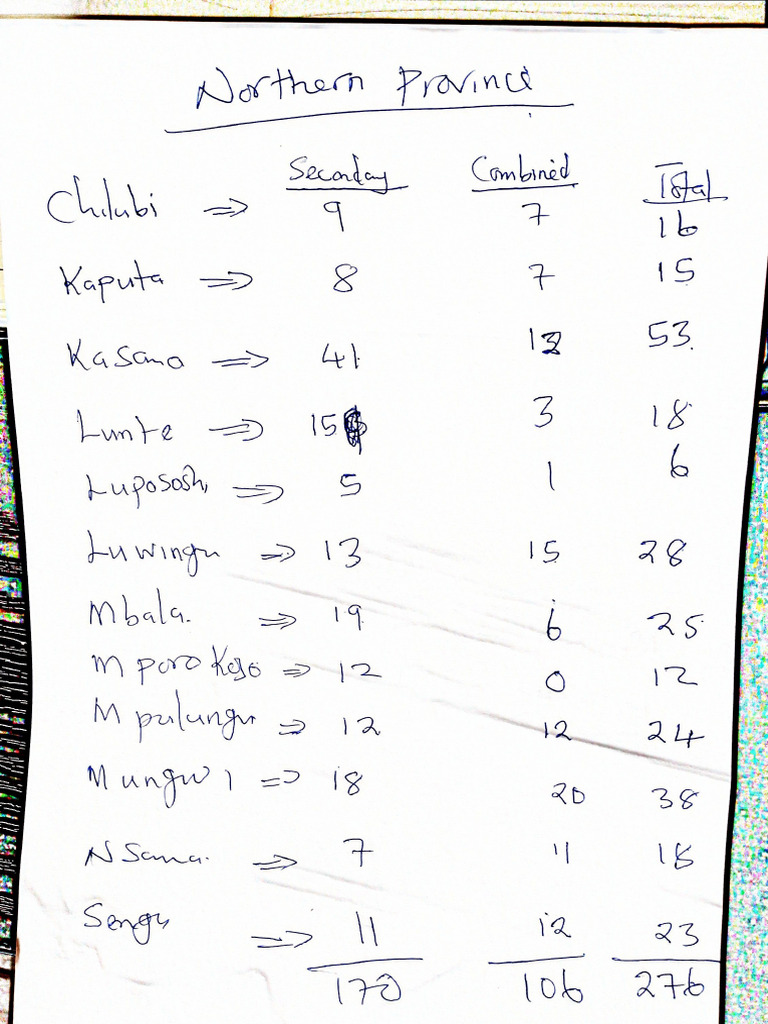 Northern Province
Secondary Combined Total
Chilubi ⇒ 9 7 16
Kaputa ⇒ 8 7 15
Kasama ⇒ 41 12 53
Lunte ⇒ 15 3 18
Lupososhi ⇒ 5 1 6
Luwingu ⇒ 13 15 28
Mbala. ⇒ 19 6 25
Mporokoso ⇒ 12 0 12
Mpulungu ⇒ 12 12 24
Mungwi ⇒ 18 20 38
Nsama. ⇒ 7 11 18
Senga ⇒ 11 12 23
170 106 276